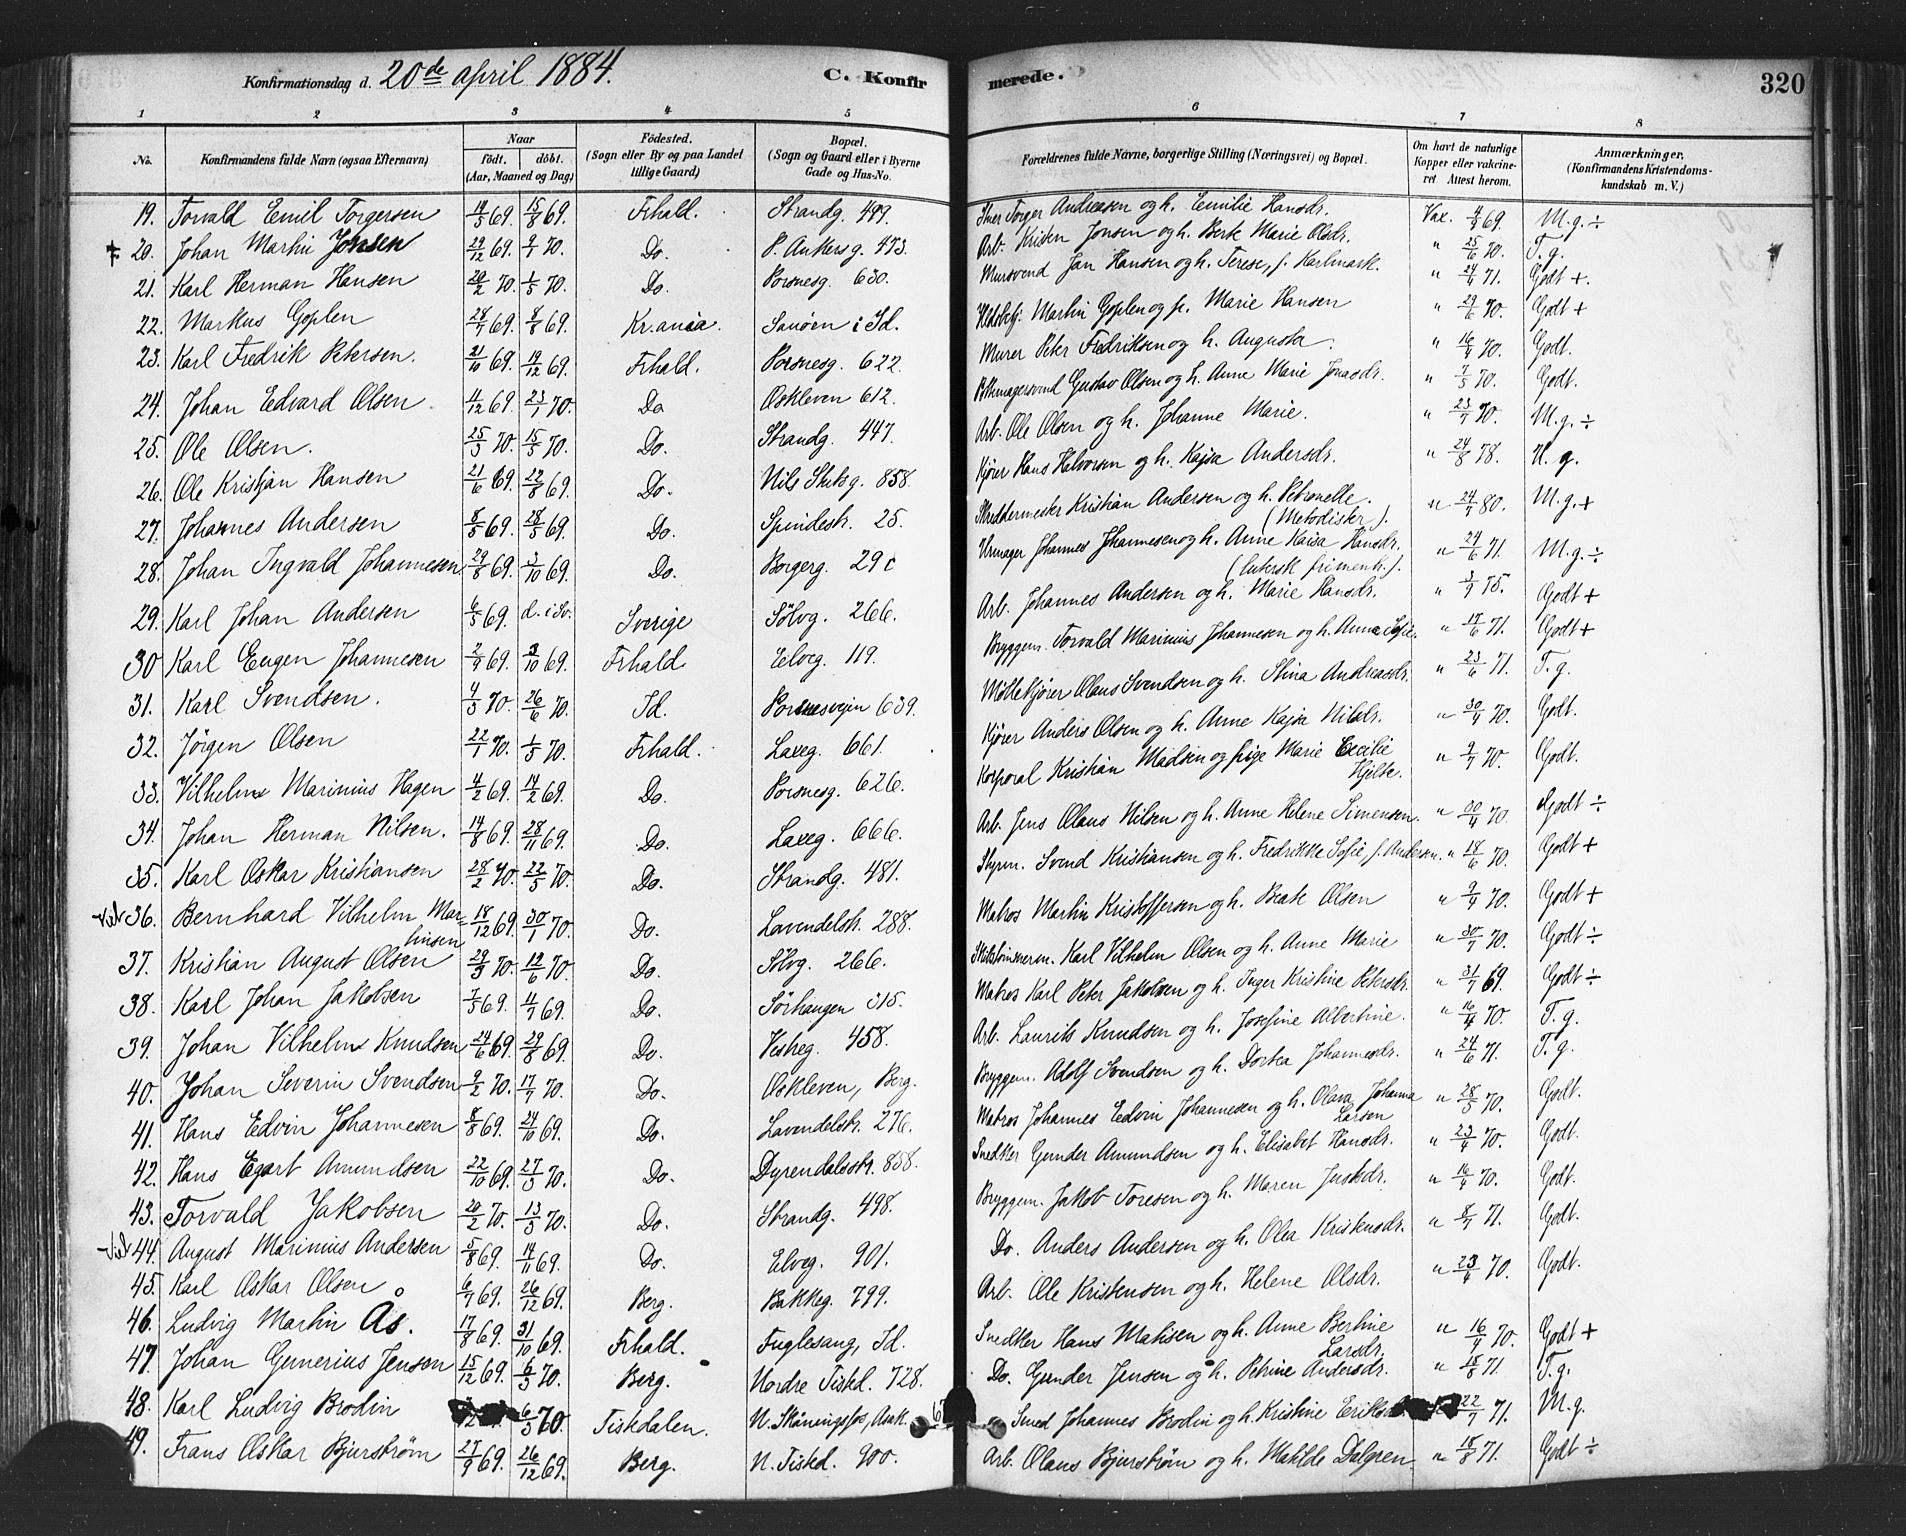 Konfirmationsdag d. 20de april 1884. C. Konfirmerede. 320
1 2 3 4 5 6 7 8
No. Konfirmandens fulde Navn (ogsaa Efternavn) Naar født. døbt. (Aar, Maaned og Dag) Fødested. (Sogn eller By og paa Landet tillige Gaard) Bopæl. (Sogn og Gaard eller i Byerne Gade og Hus-No. Forældrenes fulde Navne, borgerlige Stilling (Næringsvei) og Bopæl. Om havt de naturlige Kopper eller vakcineret Attest herom. Anmærkninger, (Konfirmandens Kristendomskundskab m. V.)
19. Torvald Emil Torgersen 14/5 69. 15/8 69. Frhald. Strandg. 499. Torger Andreasen og h. Emilie Hansdr. Vax. 4/9 69. M.g. ÷
20. Johan Martin Jensen 29/12 69. 9/1 70. Do. P. Ankersg. 473. Arb. Kristen Jensen og h. Berte Marie Olsdr. " 25/6 70. T.g.
21. Karl Herman Hansen 20/2 70. 1/5 70. Do. Porsnesg. 630. Mursvend Jan Hansen og h. Terese, f. Karlmark. " 24/6 71. Godt +.
22. Markus Goplen 28/7 69. 8/8 69. Kr.ania. Sanøen i Id. Martin Goplen og p. Marie Hansen " 29/6 70. Godt +
23. Karl Fredrik Petersen. 21/10 69. 19/12 69. Frhald. Porsnesg. 622. Murer Peter Fredriksen og h. Augusta. " 16/4 70. Godt.
24. Johan Edvard Olsen 4/12 69. 23/1 70. Do. Oskleven 612. Pottemagersvend Gustav Olsen og h. Anne Marie Jonasdr. " 7/5 70. Godt.
25. Ole Olsen. 25/3 70. 15/5 70. Do. Strandg. 447. Arb. Ole Olsen og h. Johanne Marie. " 23/7 70. M.g. ÷
26. Ole Kristjan Hansen 21/6 69. 22/8 69. Do. Nils Stubsg. 858. Kjører Hans Halvorsen og h. Kajsa Andersdr. " 24/8 78. N.g.
27. Johannes Andersen 8/5 69. 28/5 69. Do. Spindestr. 25. Skreddermester Kristian Andersen og h. Petronelle. (Metodister). " 24/7 80. M.g. +
28. Johan Ingvald Johannesen 29/8 69. 3/10 69. Do. Borgerg. 29 c Urmager Johannes Johannesen og h. Anne Kaisa Hansdr. (lutersk frimenh.). " 24/6 71. M.g. ÷
29. Karl Johan Andersen 6/5 69. d. i Sv. Sverige Sölvg. 266. Arb. Johannes Andersen og h. Marie Hansdr. " 3/9 75. Godt +
30 Karl Eugen Johannesen 2/9 69. 3/10 69. Frhald Elveg. 119. Bryggem. Torvald Marinius Johannesen og h. Anna Sofie. " 17/6 71. Godt +
31. Karl Svendsen. 4/5 70. 26/6 70. Id. Porsnesvejen 639. Møllekjører Olaus Svendsen og h. Stina Andreasdr. " 23/6 71. T.g.
32. Jörgen Olsen 22/1 70. 1/5 70. Frhald. Laxeg. 661. Kjører Anders Olsen og h. Anne Kajsa Nilsdr. " 30/4 70. Godt.
33. Vilhelm Marinius Hagen 4/2 69. 14/2 69. Do. Porsnesg. 626. Korporal Kristian Madsen og pige Marie Cecilie Hjelte. " 9/7 70. Godt.
34. Johan Herman Nilsen. 14/8 69. 28/11 69. Do. Laxeg. 666. Arb. Jens Olaus Nilsen og h. Anne Helene Simensen. " 30/4 70. Godt ÷
35. Karl Oskar Kristiansen 28/2 70. 22/5 70. Do. Strandg. 481. Styrm. Svend Kristiansen og h. Fredrikke Sofie f. Andersen. " 18/6 70. Godt +
36. Bernhard Vilhelm Martinsen 18/12 69. 30/1 70. Do. Lavendelstr. 288. Matros Martin Kristoffersen og h. Beate Olsen " 9/4 70. Godt +
37. Kristian August Olsen 29/3 70. 12/6 70. Do. Sölvg. 266. Karl Vilhelm Olsen og h. Anne Marie " 30/7 70. Godt ÷
38. Karl Johan Jakobsen 7/5 69. 4/7 69. Do. Sörhaugen 315. Matros Karl Peter Jakobsen og h. Inger Kristine Petersdr. " 31/7 69. Godt ÷
39. Johan Vilhelm Knudsen 24/6 69. 29/8 69. Do. Vestreg. 458. Arb. Laurits Knudsen og h. Josefine Albertine. " 16/4 70. T.g.
40. Johan Severin Svendsen 9/2 70. 17/7 70. Do. Oskleven, Berg. Bryggem. Adolf Svendsen og h. Dortea Johannesdr. " 24/6 71. T.g.
41. Hans Edvin Johannesen 8/8 69. 24/10 69. Do. Lavendelstr. 276. Matros Johannes Edvin Johannesen og h. Olava Johanna Larsen " 28/5 70. Godt.
42. Hans Egart Amundsen 22/10 69. 27/3 70. Do. Dyrendalsstr. 858. Snedker Gunder Amundsen og h. Elisabet Hansdr. " 23/4 70. Godt.
43. Torvald Jakobsen 20/2 70. 13/3 70. Do. Strandg. 498. Bryggem. Jakob Toresen og h. Maren Justdr. " 16/4 70. Godt.
44. August Marinius Andersen 5/8 69. 14/11 69. Do. Elveg. 901. Do. Anders Andersen og h. Olea Kristensdr. " 8/7 71. Godt.
45. Karl Oskar Olsen 6/7 69. 26/12 69. Berg. Bakkeg. 799. Arb. Ole Kristensen og h. Helene Olsdr. " 23/4 70. Godt.
46. Ludvig Martin Ås. 17/8 69. 31/10 69. Frhald. Fuglesang, Id. Snedker Hans Matisen og h. Anne Bertine Larsdr. " 16/4 70. Godt +
47. Johan Gunerius Jensen 15/12 69. 6/3 70. Berg. Nordre Tistd. 728. Do. Gunder Jensen og h. Petrine Andersdr. " 18/8 71. T.g.
48. Karl Ludvig Brodin 6/3 70. Tistedalen. N. Skåningsfos, Asak. Smed Johannes Brodin og h. Kristine 22/7 71. M.g.
49. Frans Oskar Bjurstrøm 27/9 69. 26/12 69. Berg. N. Tistd. 900. Arb. Olaus Bjurstrøm og h. Matilde Dalgren " 18/8 71. Godt ÷